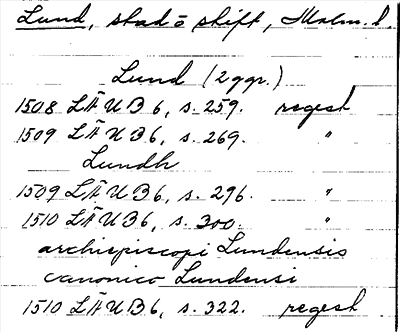 Lund, stad o skift, Malm. l.
Lund (2 ggr.)
1508 LÄUB 6, s. 259. regest
1509 LÄUB 6, s. 269. "
Lundh
1509 LÄUB 6, s. 296. "
1510 LÄUB 6, s. 300. "
archiepiscopi Lundensis
canonico Lundensi
1510 LÄUB 6, s. 322. regest